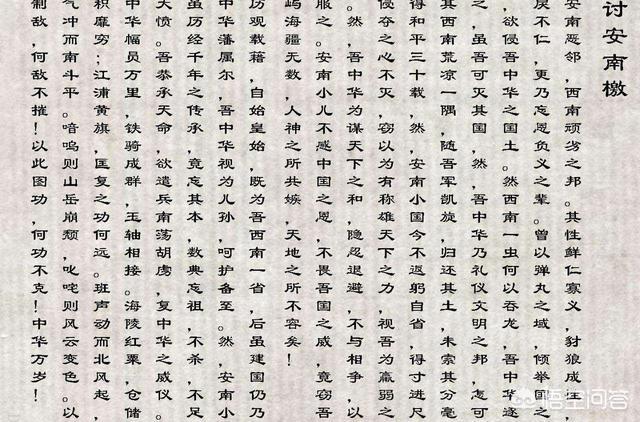 讨安南檄
安南恶邻，西南顽劣之邦。其性鲜仁寡义，豺狼成性，
戾不仁，更乃忘恩负义之辈。曾以弹丸之域，倾举国之
，欲侵吾中华之国土。然西南一虫何以吞龙，吾中华遂
之，虽吾可灭其国，然，吾中华乃礼仪文明之邦，怎可
其西南荒凉一隅，随吾军凯旋，归还其土，未索其分毫
得和平三十载，然，安南小国今不返躬自省，得寸进尺
侵夺之心不灭，窃以为有称雄天下之力，视吾为羸弱之
。然，吾中华为谋天下之和，隐忍退避，不与相争，以
服之。安南小儿不感中国之恩，不畏吾国之威，竟窃吾
屿海疆无数，人神之所共嫉，天地之所不容矣！
历观载籍，自始皇始，既为吾西南一省，后虽建国仍乃
中华藩属尔，吾中华视为儿孙，呵护备至。然，安南小
虽历经千年之传承，竟忘其本，数典忘祖，不杀，不足
天愤。吾恭承天命，欲遣兵南荡胡虏，复中华之威仪。
中华幅员万里，铁骑成群，玉轴相接。海陵红粟，仓储
积靡穷；江浦黄旗，匡复之功何远。班声动而北风起，
气冲而南斗平。喑呜则山岳崩颓，叱咤则风云变色。以
制敌，何敌不摧！以此图功，何功不克！中华万岁！
悟空问答